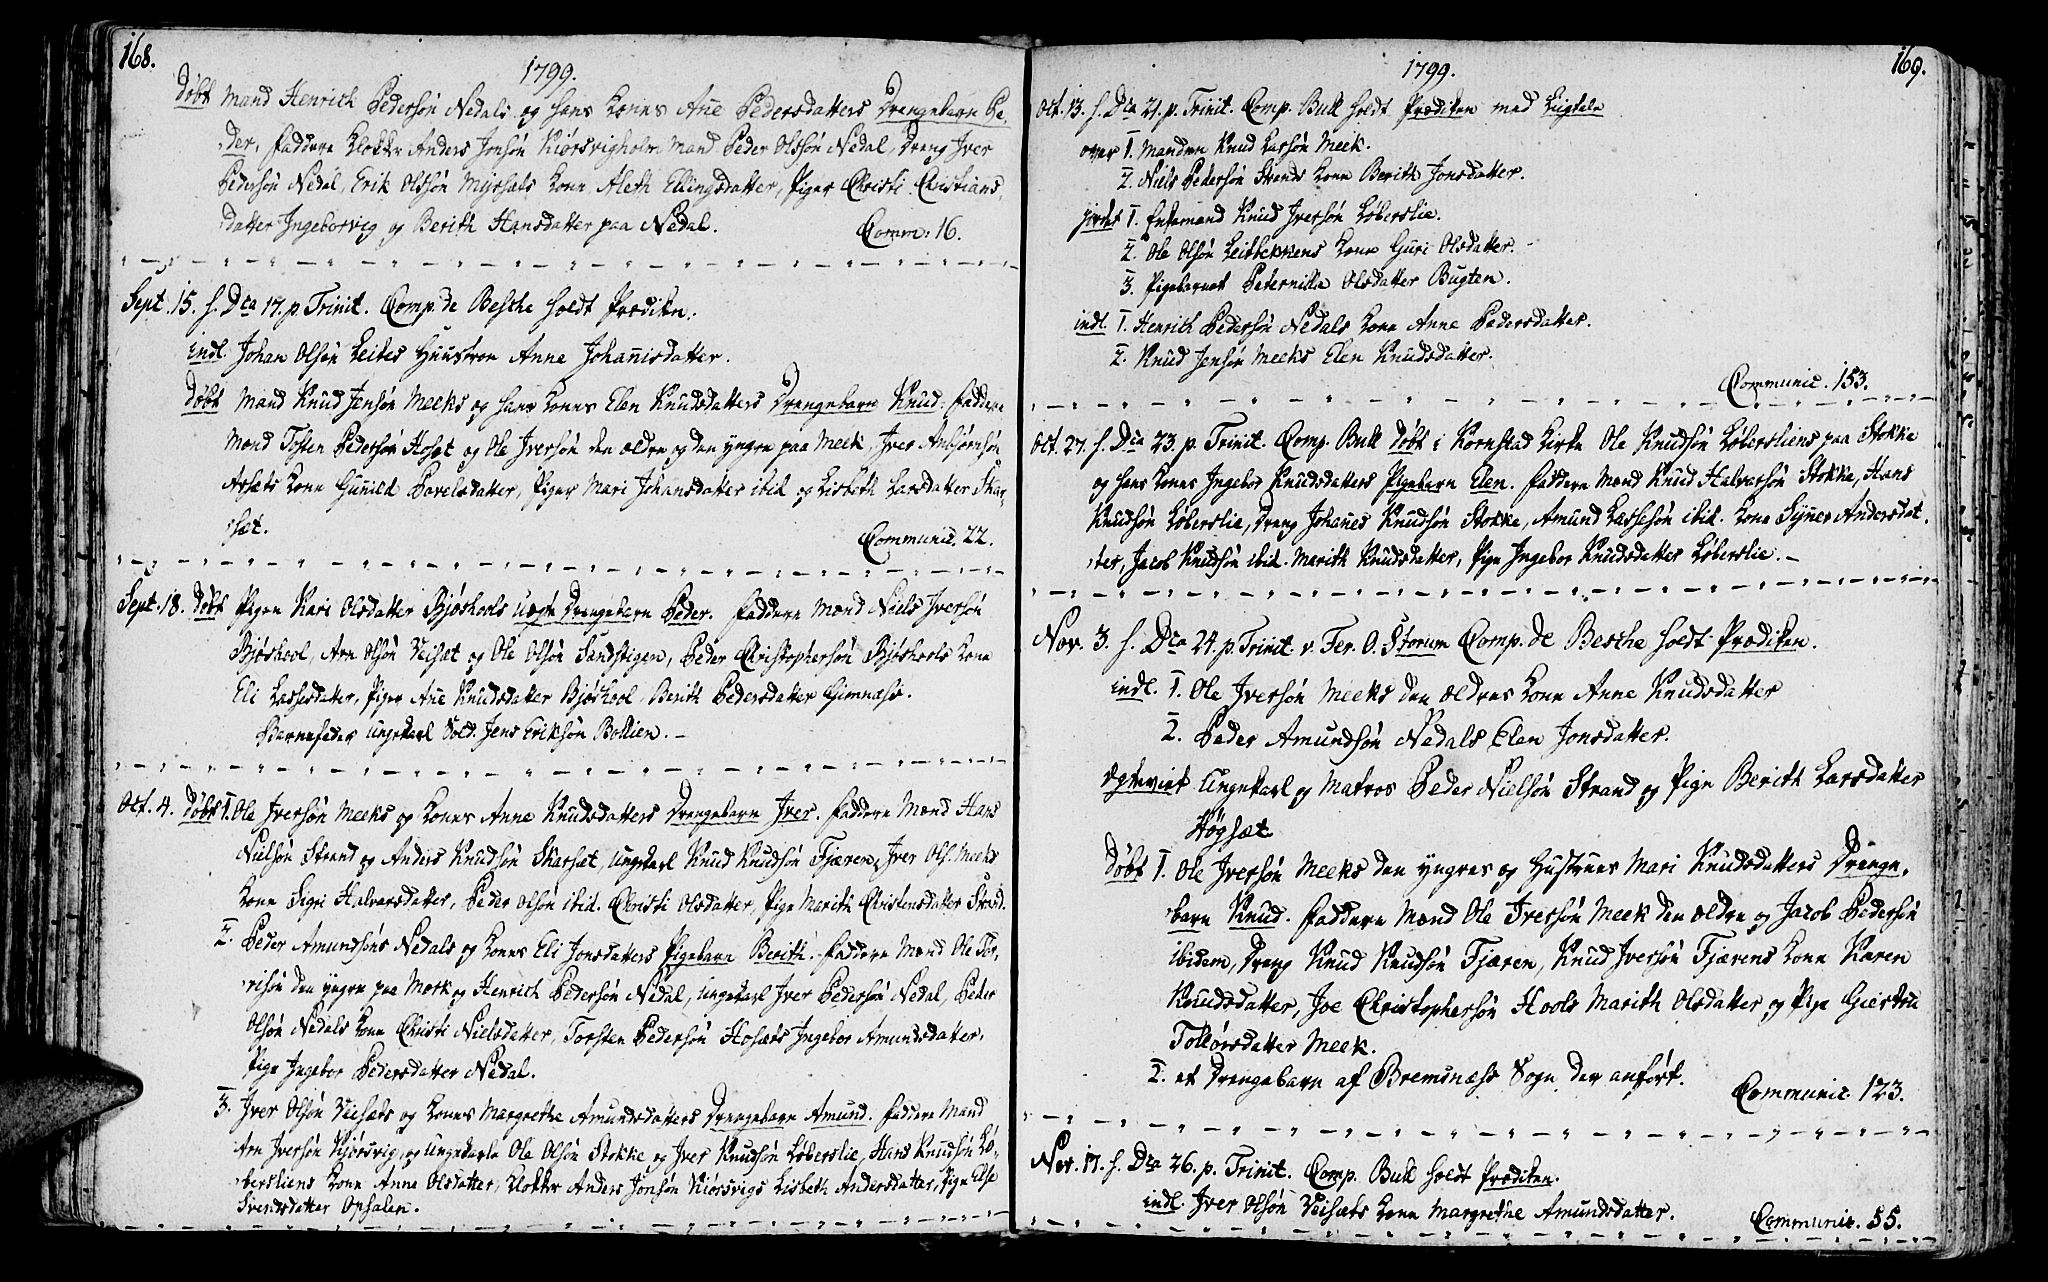 168.
1799.
døbt Mand Henrich Pedersøn Nedals og hans Kones Ane Pedersdatters Drengebarn Pe-
der, faddere Klokker Anders Jonsøn Kiørsvigholm, Mand Peder Olsøn Nedal, Dreng Iver
Pedersøn Nedal, Erik Olsøn Myrsæts Kone Aleth Ellingsdatter, Piger Christi Christians-
datter Ingeborvig og Berith Hansdatter paa Nedal.
Comm: 16.
Sept. 15. h. Dca 17. p. Trinit. Comp. de Besche holdt Prædiken.
indl. Johan Olsøn Leites Huustroe Anne Johanisdatter.
døbt Mand Knud Jensøn Meeks og hans Kones Elen Knudsdatters Drengebarn Knud. faddere
Mænd Tosten Pedersøn Hoset og Ole Iversøn den ældre og den yngre paa Meek, Iver Anbiørnsøn
Asæts Kone Gunild Povelsdatter, Piger Mari Johansdatter ibid og Lisbeth Larsdatter Skar-
sæt.
Communic. 22.
Sept. 18. døbt Pigen Kari Olsdatter Bjøshools uægte Drengebarn Peder. faddere Mænd Niels Iversøn
Bjøshool, Arn Olsøn Veisæt og Ole Olsøn Sandstigen, Peder Christophersøn Bjøshools Kone
Eli Lassesdatter, Piger Ane Knudsdatter Bjøshool, Berith Pedersdatter Gimnæss.
Barnefader ungekarl Sold. Jens Eriksøn Bollien.
Oct. 4. døbt 1. Ole Iversøn Meeks og Kones Anne Knudsdatters Drengebarn Iver. faddere Mænd Hans
Nielsøn Strand og Anders Knudsøn Skarsæt, ungekarl Knud Knudsøn Fjæren, Iver Ols. Meeks
Kone Sigri Halvorsdatter, Peder Olsøn ibid. Christi Olsdatter, Pige Marith Christensdatter Strand.
2. Peder Amundsøns Nedals og Kones Eli Jonsdatters Pigebarn Berith. faddere Mænd Ole Ive-
risøn den yngre paa Meek og Henrich Pedersøn Nedal, ungekarl Iver Pedersøn Nedal, Peder
Olsøn Nedals Kone Christi Nielsdatter, Torsten Pedersøn Hosæts Ingebor Amundsdatter,
Pige Ingebor Pedersdatter Nedal.
3. Iver Olsøn Veisæts og Kones Margrethe Amundsdatters Drengebarn Amund. faddere Mand
Arn Iversøn Kiørsvig, og ungekarle Ole Olsøn Stokke og Iver Knudsøn Løberslie, Hans Knudsøn Lø-
bersliens Kone Anne Olsdatter, Klokker Anders Jonsøn Kiørsvigs Lisbeth Andersdatter, Pige Else
Svendsdatter Opsalen.
169.
1799.
Oct. 13. h. Dca 21. p. Trinit. Comp. Bull holdt Prædiken med Liigtale
over 1. Manden Knud Lassøn Meek.
2. Niels Pedersøn Strands Kone Berith Jonsdatter.
jordet 1. Enkemand Knud Iversøn Løberslie.
2. Ole Olsøn Leitbekkens Kone Guri Olsdatter.
3. Pigebarnet Peternilla Olsdatter Bugten.
indl. 1. Henrich Pedersøn Nedals Kone Anne Pedersdatter.
2. Knud Jensøn Meeks Elen Knudsdatter.
Communic. 153.
Oct. 27. h. Dca 23. p. Trinit. Comp. Bull døbt i Kornstad Kirke Ole Knudsøn Løbersliens paa Stokke
og hans Kones Ingebor Knudsdatters Pigebarn Elen. faddere Mænd Knud Halvorsøn Stokke, Hans
Knudsøn Løberslie, Dreng Johanes Knudsøn Stokke, Amund Lassesøn ibid. Kone Synev Andersdat-
ter, Jacob Knudsøn ibid. Marith Knudsdatter, Pige Ingebor Knudsdatter Løberslie.
Nov. 3. h. Dca 24. p. Trinit. v. Fer. O. Storum Comp. de Besche holdt Prædiken.
indl. 1. Ole Iversøn Meeks den ældres Kone Anne Knudsdatter
2. Peder Amundsøn Nedals Elen Jonsdatter.
Egteviet Ungekarl og Matros Peder Nielsøn Strand og Pige Berith Larsdatter
Høgsæt
døbt 1. Ole Iversøn Meeks den yngres og Hustrues Mari Knudsdatters Drenge-
barn Knud. faddere Mænd Ole Iversøn Meek den ældre og Jacob Pedersøn
ibidem, Dreng Knud Knudsøn Fjæren, Knud Iversøn Fjærens Kone Karen
Knudsdatter, Joe Christophersøn Hools Marith Olsdatter og Pige Giertru
Tollørsdatter Meek.
2. et Drengebarn af Bremsnæss Sogn der anført.
Communic. 123.
Nov. 17. h. Dca 26. p. Trinit. Comp. Bull holdt Prædiken.
indl. Iver Olsøn Veisæts Kone Margrethe Amundsdatter.
Communic. 55.